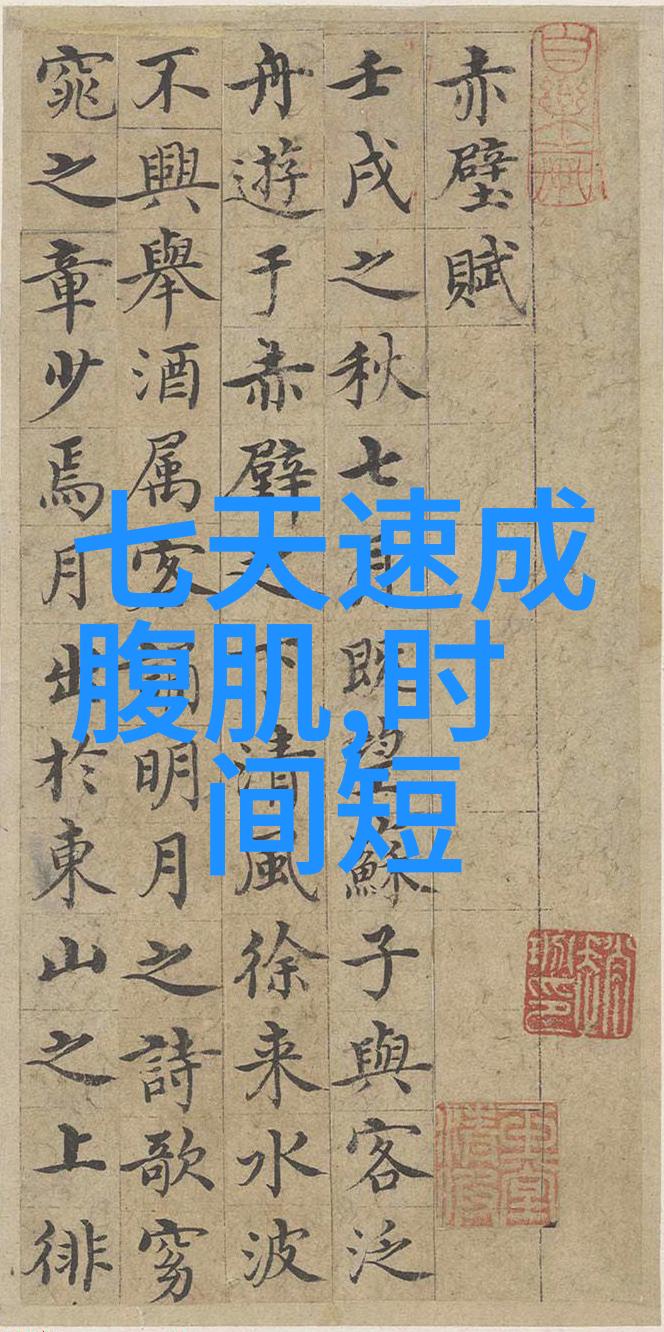 赤壁賦
壬戌之秋七月既望蘇子與客泛
舟遊于赤壁之下清風徐来水波
不興舉酒属客誦明月之詩歌窈
窕之章少焉月出於東山之上徘
七天速成
腹肌,时
间短